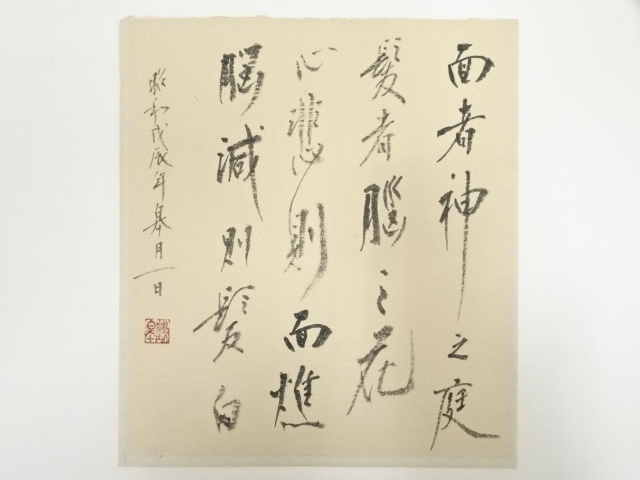 面者神之庭
髮者腦之花
心悲則面燋
腦減則髮白
昭和戊辰年皐月一日